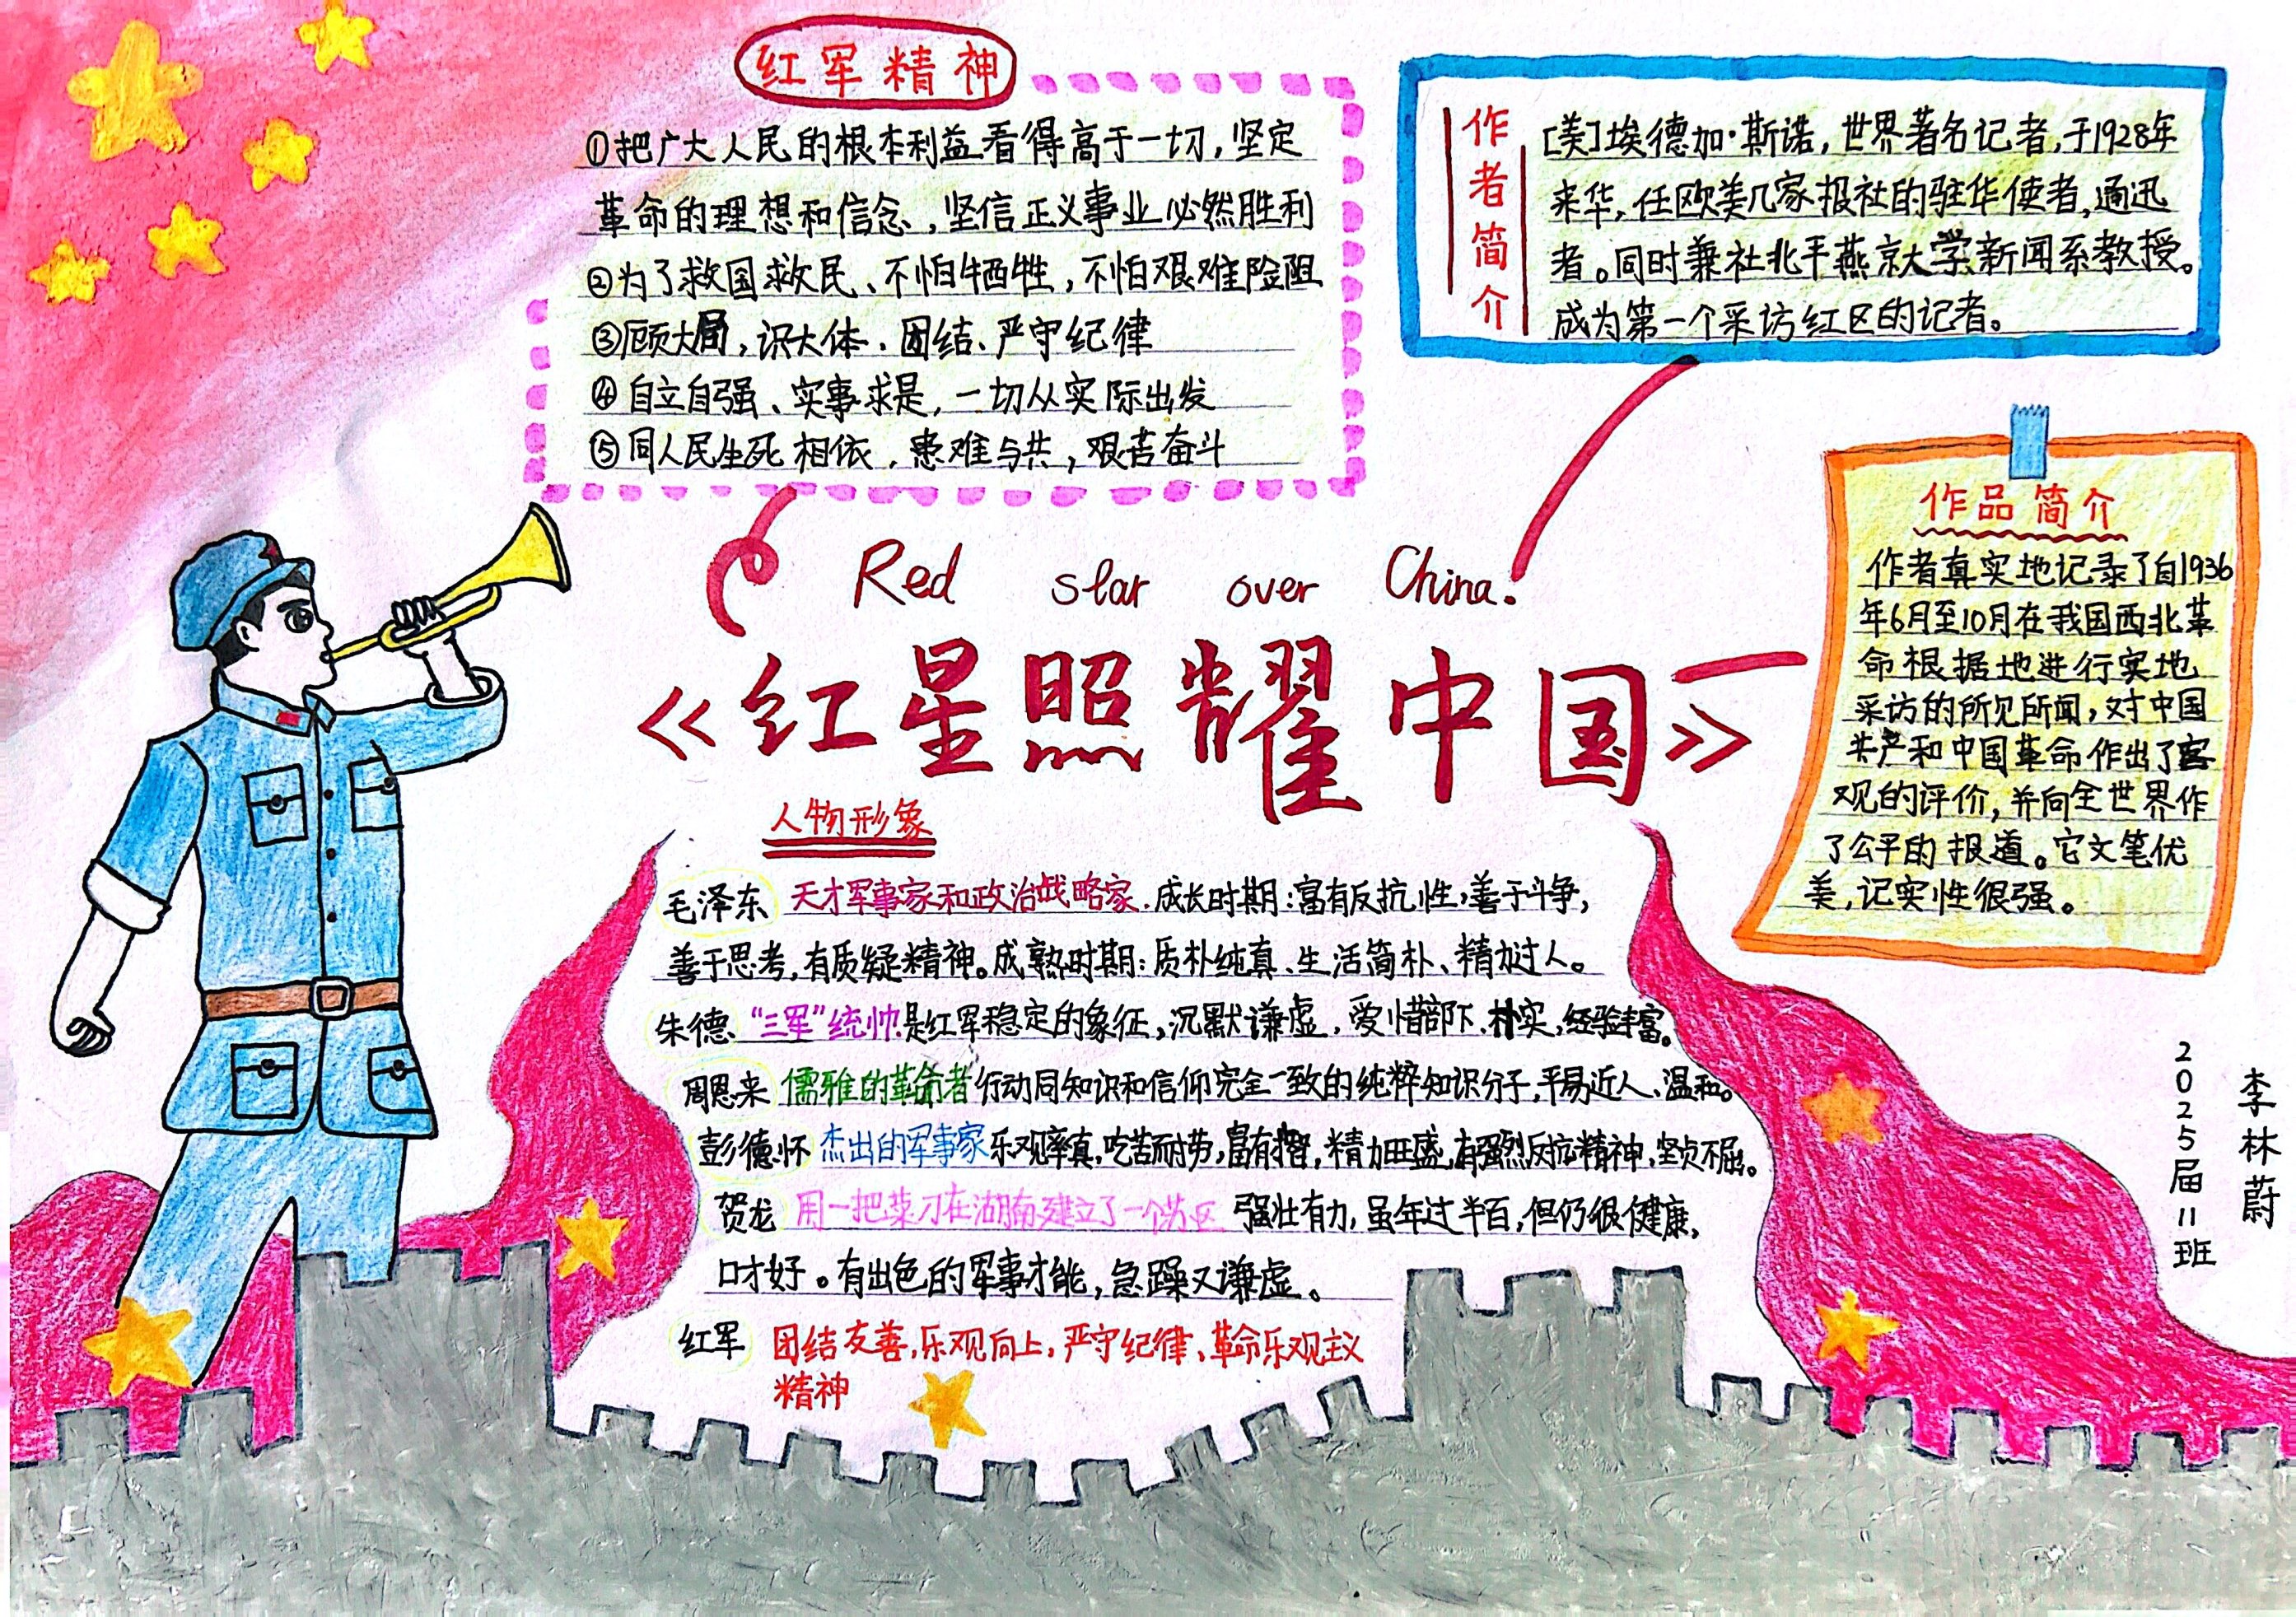 红军精神
①把广大人民的根本利益看得高于一切，坚定
革命的理想和信念，坚信正义事业必然胜利
②为了救国救民、不怕牺牲，不怕艰难险阻
③顾大局，识大体、团结、严守纪律
④自立自强、实事求是，一切从实际出发
⑤同人民生死相依，患难与共，艰苦奋斗
作者简介
[美]埃德加·斯诺，世界著名记者，于1928年
来华，任欧美几家报社的驻华使者，通迅
者。同时兼社北平燕京大学新闻系教授。
成为第一个采访红区的记者。
Red star over China.
《红星照耀中国》
作品简介
作者真实地记录了自1936
年6月至10月在我国西北革
命根据地进行实地
采访的所见所闻，对中国
共产和中国革命作出了客
观的评价，并向全世界作
了公平的报道。它文笔优
美，记实性很强。
人物形象
毛泽东 天才军事家和政治战略家.成长时期：富有反抗性，善于斗争，
善于思考，有质疑精神。成熟时期：质朴纯真、生活简朴、精力过人。
朱德 “三军”统帅是红军稳定的象征，沉默谦虚，爱惜部下、朴实，经验丰富。
周恩来 儒雅的革命者行动同知识和信仰完全一致的纯粹知识分子，平易近人、温和。
彭德怀 杰出的军事家乐观率真，吃苦耐劳，富有智，精力旺盛，有强烈反抗精神，坚贞不屈。
贺龙 用一把菜刀在湖南建立了一个苏区 强壮有力，虽年过半百，但仍很健康，
口才好。有出色的军事才能，急躁又谦虚。
红军 团结友善，乐观向上，严守纪律、革命乐观主义
精神
2025届11班
李林蔚